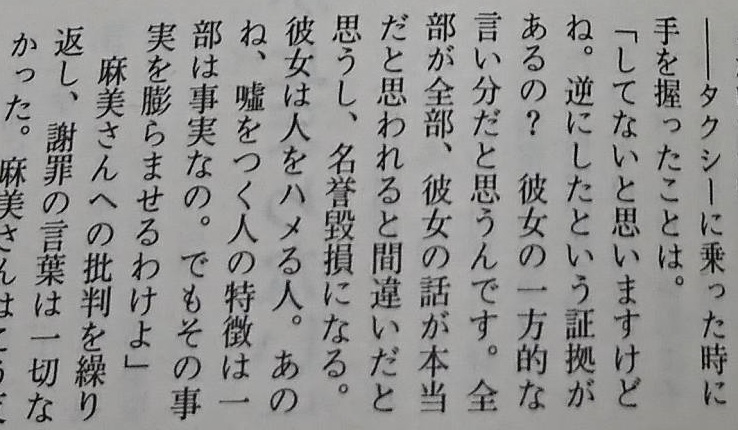 ――タクシーに乗った時に
手を握ったことは。
「してないと思いますけど
ね。逆にしたという証拠が
あるの？　彼女の一方的な
言い分だと思うんです。全
部が全部、彼女の話が本当
だと思われると間違いだと
思うし、名誉毀損になる。
彼女は人をハメる人。あの
ね、嘘をつく人の特徴は一
部は事実なの。でもその事
実を膨らませるわけよ」
麻美さんへの批判を繰り
返し、謝罪の言葉は一切な
かった。麻美さんは